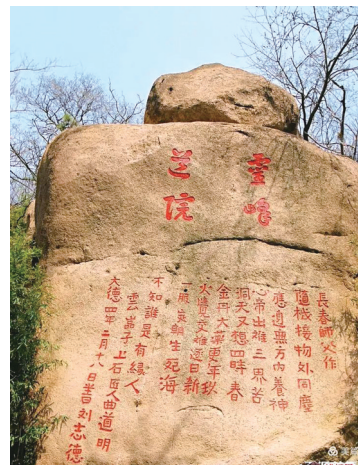 靈峰
道院
長春師父作
隨機接物外同塵
應道無方內養神
心帝出離三界苦
洞天又想四時春
金丹大藥更年玖
火棗交梨逐日新
一生死海
不知誰是有緣人
雲嵓子上石匠人曲道明
大德四年二月十八日刘志德